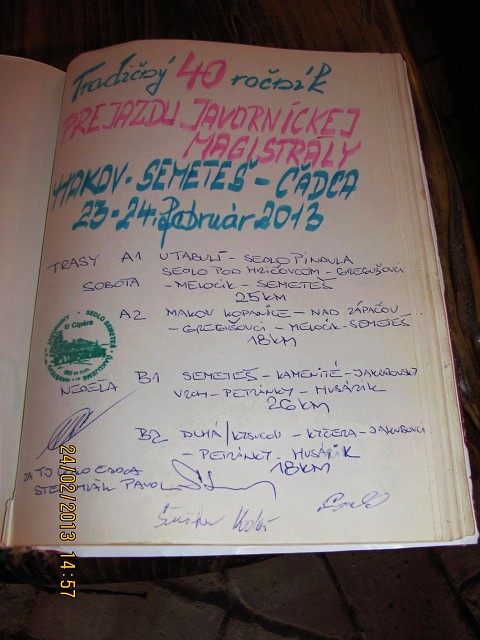 Tradičný 40 ročník
PREJAZDU JAVORNÍCKEJ
MAGISTRÁLY
MAKOV - SEMETEŠ - ČADCA
23-24. Február 2013
TRASY A1 U TABULÍ - SEDLO PINDULA
SEDLO POD HRIČOVCOM - GREGUŠOVCI
SOBOTA - MELOCIK - SEMETEŠ
25KM
A2 MAKOV KOPANICE - NAD
- GREGUŠOVCI - MELOČIK - SEMETEŠ
18KM
NEDEĽA B1 SEMETEŠ - KAMENITÉ - JAKUBOVSKÝ
VRCH - PETRÁNKY - HUSÁRIK
26KM
B2 DLHÁ / KYSUCOU - KYČERA - JAKUBOVCI
- PETRÁNKY - HUSÁRIK
18KM
ZA TO
PAVOL
24/02/2013 14:57